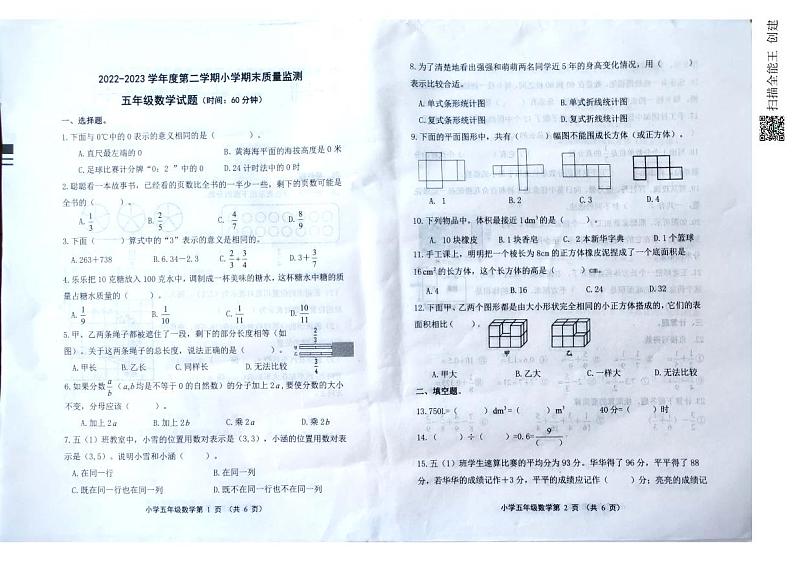 2022-2023 学年度第二学期小学期末质量监测
五年级数学试题（时间：60 分钟）
一、选择题。
1.下面与 0℃中的 0 表示的意义相同的是（ ）。
A.直尺最左端的 0 B. 黄海海平面的海拔高度是 0 米
C.足球比赛计分牌“0：2 ”中的 0 D.24 计时法中的 0 时
2.聪聪看一本故事书，已经看的页数比全书的一半少一些，剩下的页数可能是
全书的（ ）。
A. 1/3 B. 2/5 C. 4/7 D. 8/9
3.下面（ ）算式中的“3”表示的意义是相同的。
A.263＋738 B.6.34－2.3 C. 2/3＋3/4 D. 3＋3/7
4.乐乐把 10 克糖放入 100 克水中，调制成一杯美味的糖水，这杯糖水中糖的质
量占糖水质量的（ ）。
A. 1/9 B. 1/10 C. 1/11 D. 10/11
5.甲、乙两条绳子都被遮住了一段，剩下的部分长度相等（如
图）。关于这两条绳子的总长度，说法正确的是（ ）。
2/3
3/4
A.甲长 B.乙长 C.同样长 D.无法比较
6.如果分数 a/b（a,b 均是不等于 0 的自然数）的分子加上 2a，要使分数的大小
不变，分母应该（ ）。
A.加上 2a B.加上 2b C.乘 2a D.乘 2b
7.五（1）班教室中，小雪的位置用数对表示是（3,3），小涵的位置用数对表
示是（3,5）。说明小雪和小涵（ ）。
A.在同一行 B.在同一列
C.既在同一行也在同一列 D.既不在同一行也不在同一列
小学五年级数学第 1 页 （共 6 页）
8.为了清楚地看出强强和萌萌两名同学近 5 年的身高变化情况，用（ ）
表示比较合适。
A.单式条形统计图 B.单式折线统计图
C.复式条形统计图 D.复式折线统计图
9.下面的平面图形中，共有（ ）幅图不能围成长方体（或正方体）。
A. 1 B.2 C.3 D.4
10.下列物品中，体积最接近 1dm³的是（ ）。
A. 10 块橡皮 B.1 块香皂 C. 2 本新华字典 D.1 个篮球
11.手工课上，明明把一个棱长为 8cm 的正方体橡皮泥捏成了一个底面积是
16cm²的长方体，这个长方体的高是（ ）cm。
A.4 B.16 C.24 D.32
12.下面甲、乙两个图形都是由大小形状完全相同的小正方体搭成的，它们的表
面积相比（ ）。
甲 乙
A.甲大 B.乙大 C.一样大 D.无法比较
二、填空题。
13.750L=（ ）dm³=（ ）m³ 40分=（ ）时
14.（ ）÷（ ）=0.6= 9/（ ）
15.五（1）班学生速算比赛的平均分为 93 分。华华得了 96 分，平平得了 88
分，若华华的成绩记作＋3 分，平平的成绩应记作（ ）分；亮亮的成绩记
小学五年级数学第 2 页 （共 6 页）
扫描全能王 创建